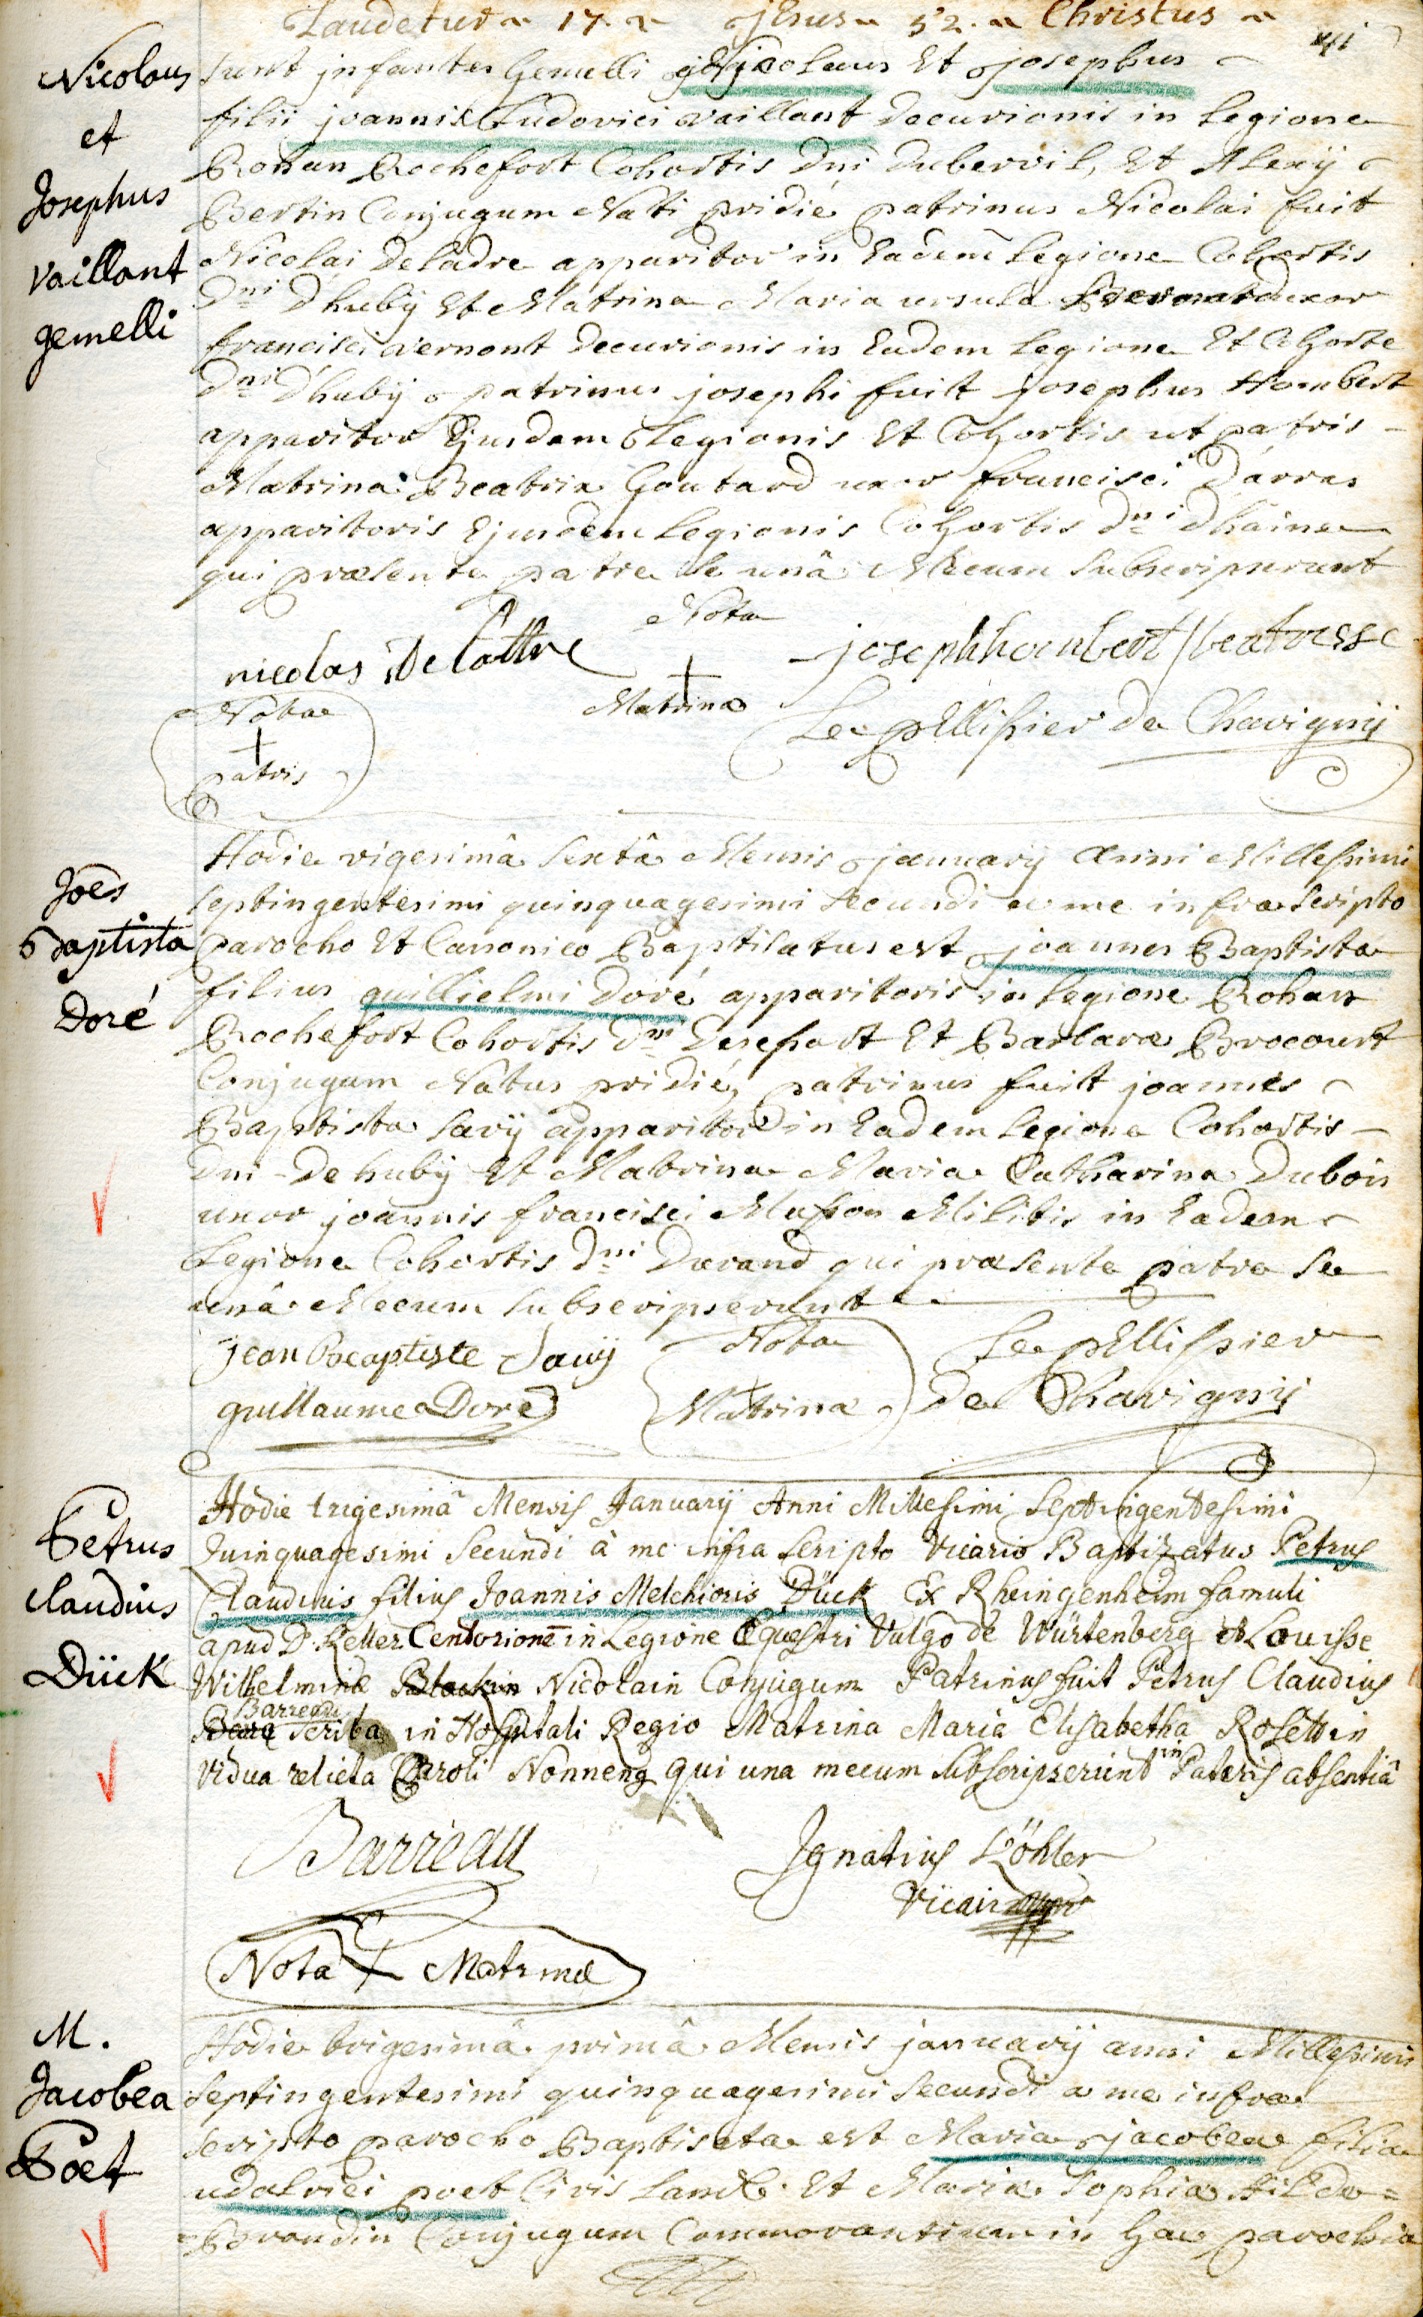 Laudetur 17. Jesus 52. Christus
Nicolaus
et
Josephus
Vaillant
gemelli
sunt infantes Gemelli Nicolaus Et josephus
filii joannis Ludovici vaillant decurionis in Legione
Rohan Rochefort Cohortis Dni Dubervil, Et Alexÿ
Bertin Conjugum Nati pridié patrinus Nicolai fuit
Nicolai Deladre apparitor in Eadem Legione Cohortis
Dni Dhubÿ Et Matrina Maria ursula uxor
francisci vernont Decurionis in Eadem Legione Et Cohorte
Dni Dhubÿ patrinus josephi fuit josephus Hombert
apparitor Ejusdem Legionis Et Cohortis ut patris
Matrina Beatrix Goutard uxor francisci Darras
apparitoris Ejusdem Legionis Cohortis Dni Dhaine
qui præsente patre se unâ Mecum subscripserunt
nicolas Delattre
Nota
+
Matrinæ
joseph hombert / beatresse
Nota
+
patris
Le pellissier de Chavignÿ
Joes
Baptista
Doré
Hodie vigesimâ sextâ Mensis januarÿ Anni Millessimi
septingentesimi quinquagesimi secundi a me infra scripto
parocho Et Canonico Baptisatus est joannes Baptista
filius guillielmi Doré apparitoris in Legione Rohan
Rochefort Cohortis Dni Desepart Et Barbara Brocourt
Conjugum Natus pridié, patrinus fuit joannes
Baptista Savÿ apparitor in Eadem Legione Cohortis
Dni De hubÿ Et Matrina Maria Catharina Dubois
uxor joannis francisci Musson Militis in Eadem
Legione Cohortis Dni Durand qui præsente patre se
unâ Mecum subscripserunt
jean Baptiste Savÿ
guillaume Dore
Nota
+
Matrinæ
Le pellissier
de Chavignÿ
Petrus
Claudius
Dück
Hodie trigesimâ Mensis Januarÿ Anni Millesimi septingentesimi
quinquagesimi secundi à me infra scripto Vicario Baptizatus Petrus
Claudius filius Joannis Melchioris Dück Ex Rheingenheim famuli
apud D. Keller Centorione in Legione Equestri Vulgo de Würtenberg et Louisse
Wilhelmine Nicolain Conjugum Patrinus fuit Petrus Claudius
Barreau scriba in Hospitali Regio Matrina Maria Elisabetha Rosettin
Vidua relicta Caroli Nonneng qui una mecum subscripserunt in Patris absentiâ
Barreau
Ignatius Köhler
Nota + Matrinæ
M.
Jacobea
Poet
Hodie trigesimâ primâ Mensis januarÿ anni Millessimi
septingentesimi quinquagesimi secundi a me infra
scripto parocho Baptisata est Maria jacobea filia
udalrici poet Civis Et Mariæ Sophiæ Hilde=
=Brandin Conjugum Commorantium in hac parochia